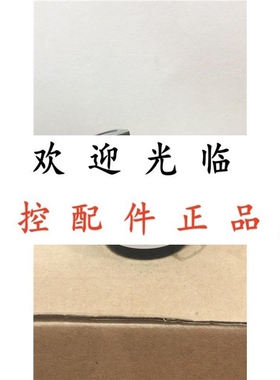 欢迎光临
控配件正品